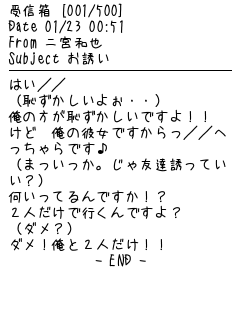 受信箱 [001/500]
Date 01/23 00:51
From 二宮和也
Subject お誘い
はい//
（恥ずかしいよぉ・・）
俺の方が恥ずかしいですよ！！
けど　俺の彼女ですからっ//へ
っちゃらです♪
（まぃっか。じゃ友達誘ってい
い？）
何いってるんですか！？
２人だけで行くんですよ？
（ダメ？）
ダメ！俺と２人だけ！！
- END -